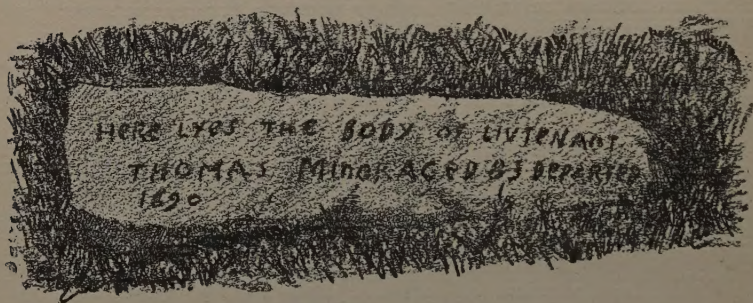 HERE LYES THE BODY OF LIVTENANT
THOMAS MINORAGED 83 DEPARTED
1690